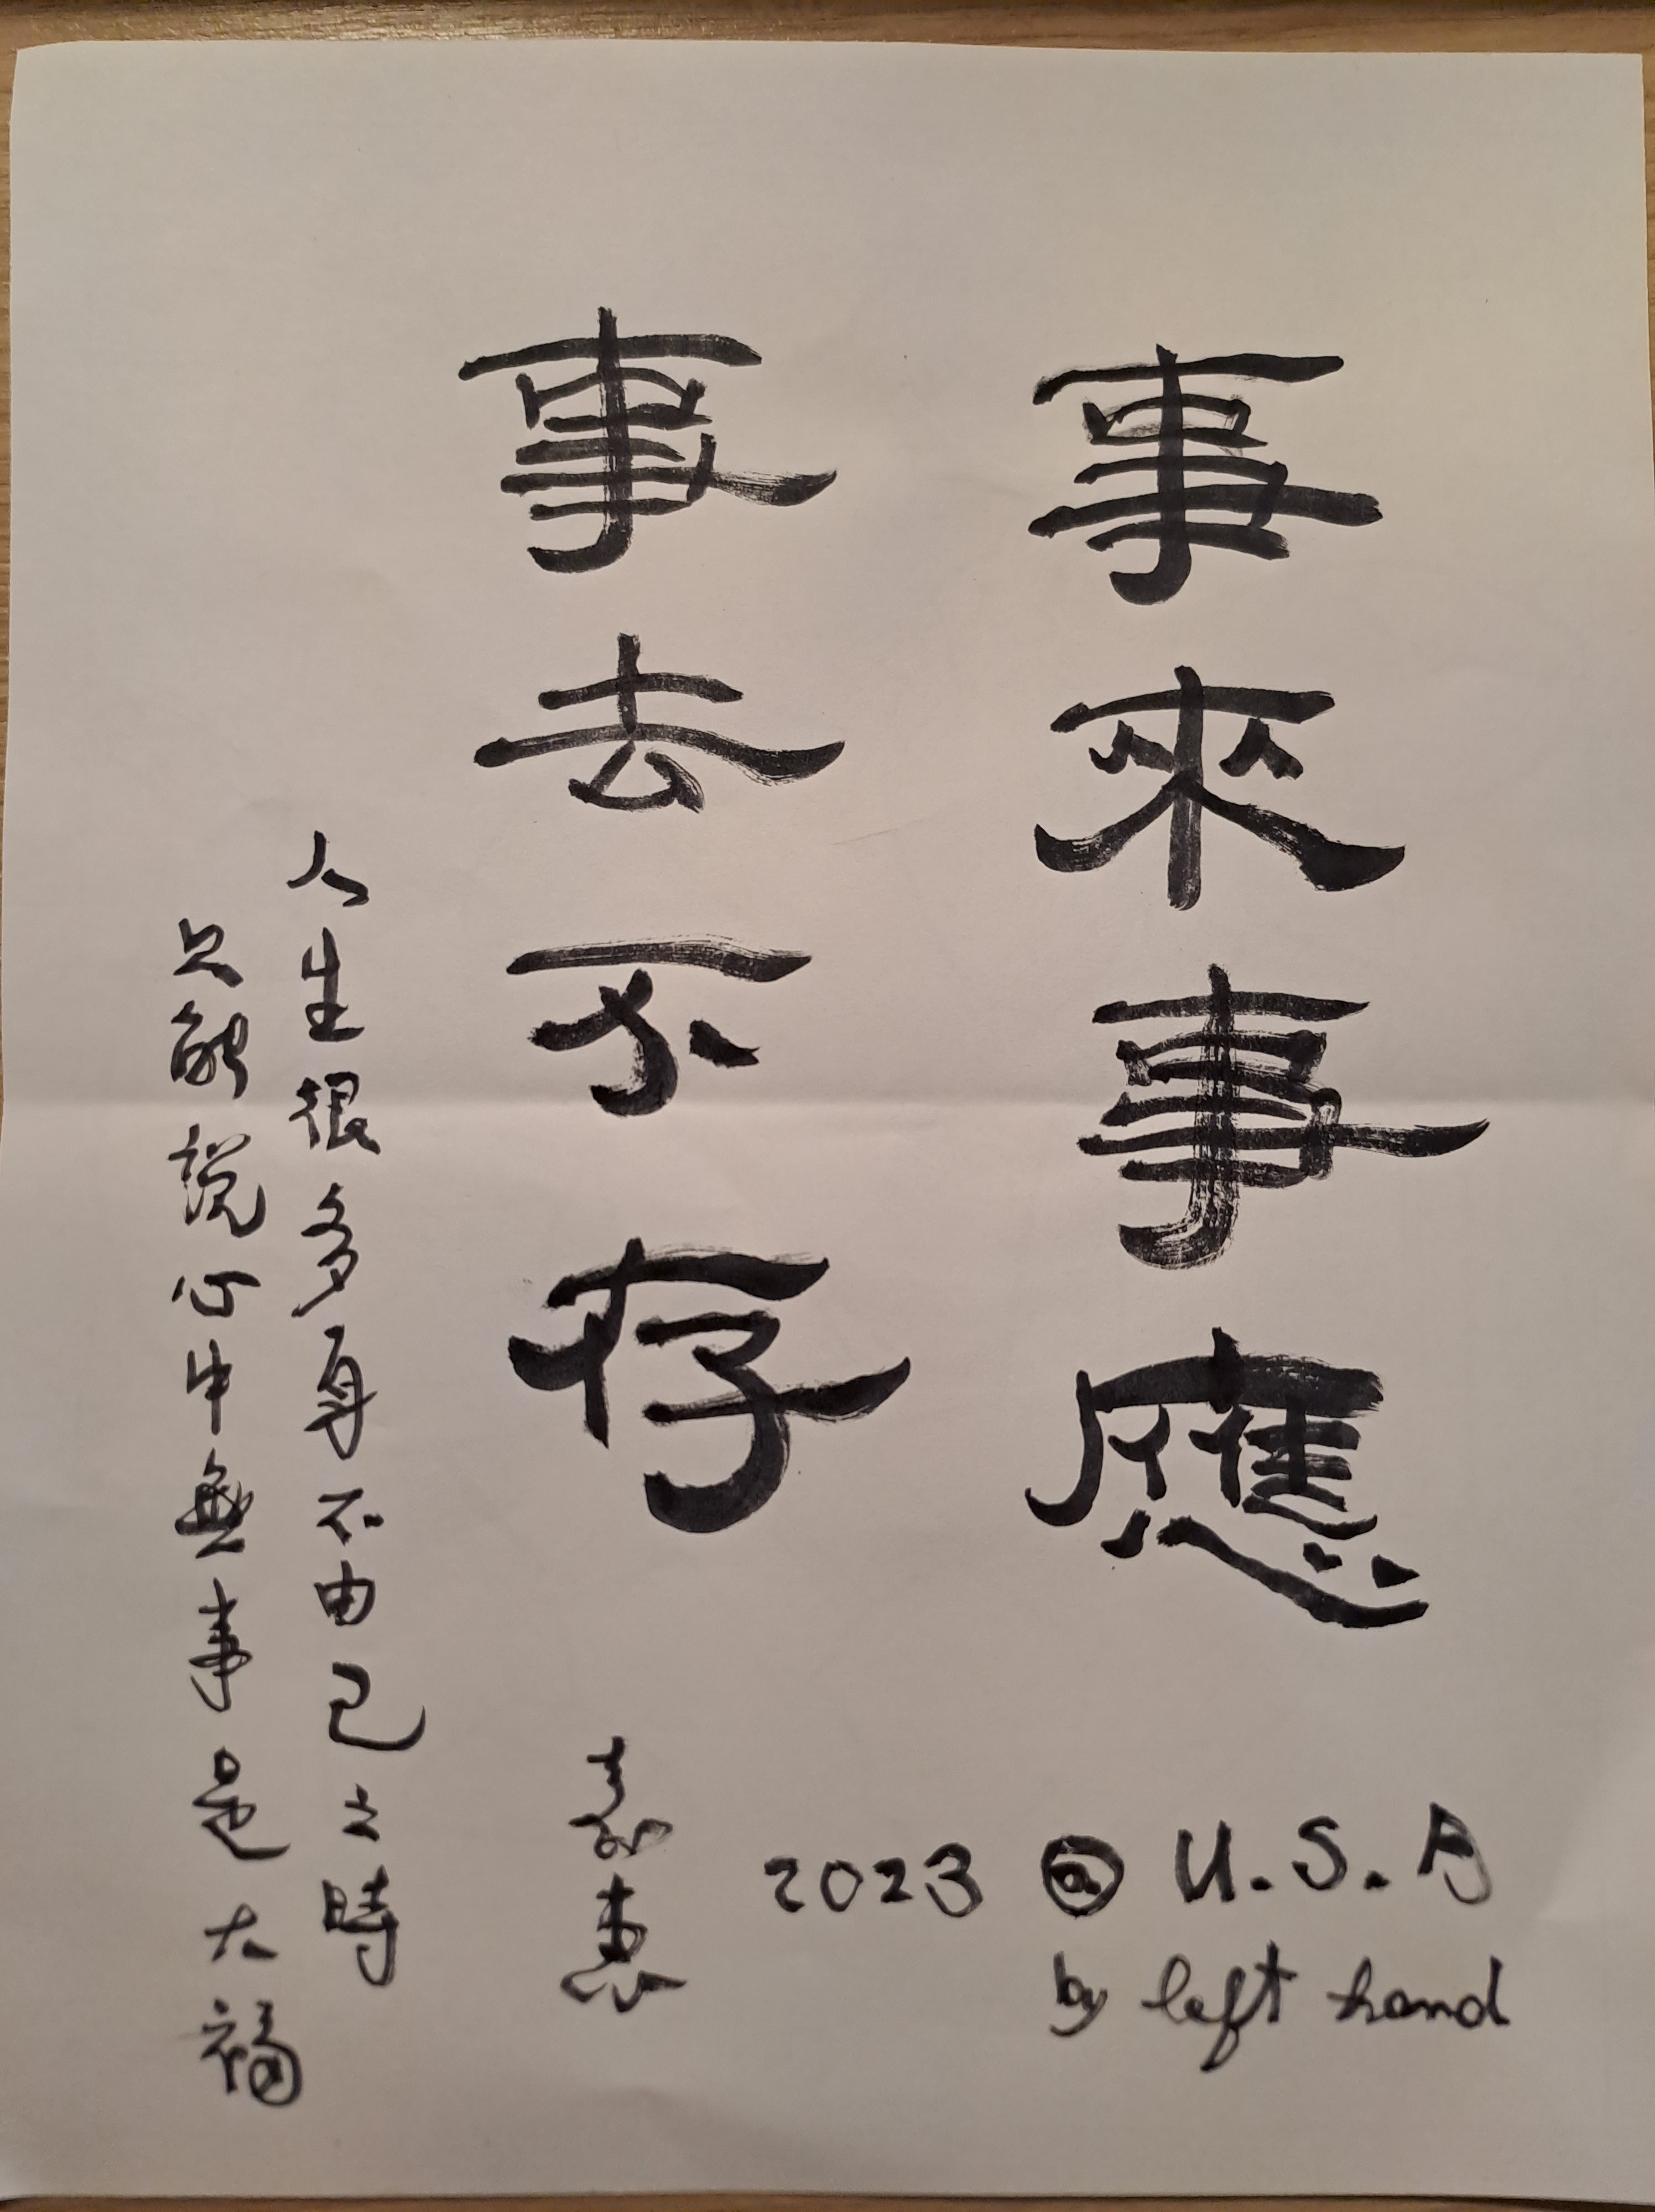 事來事應
事去不存
人生很多身不由已之時
只能說心中無事是大福
嘉惠
2023 @ U.S.A
by left hand